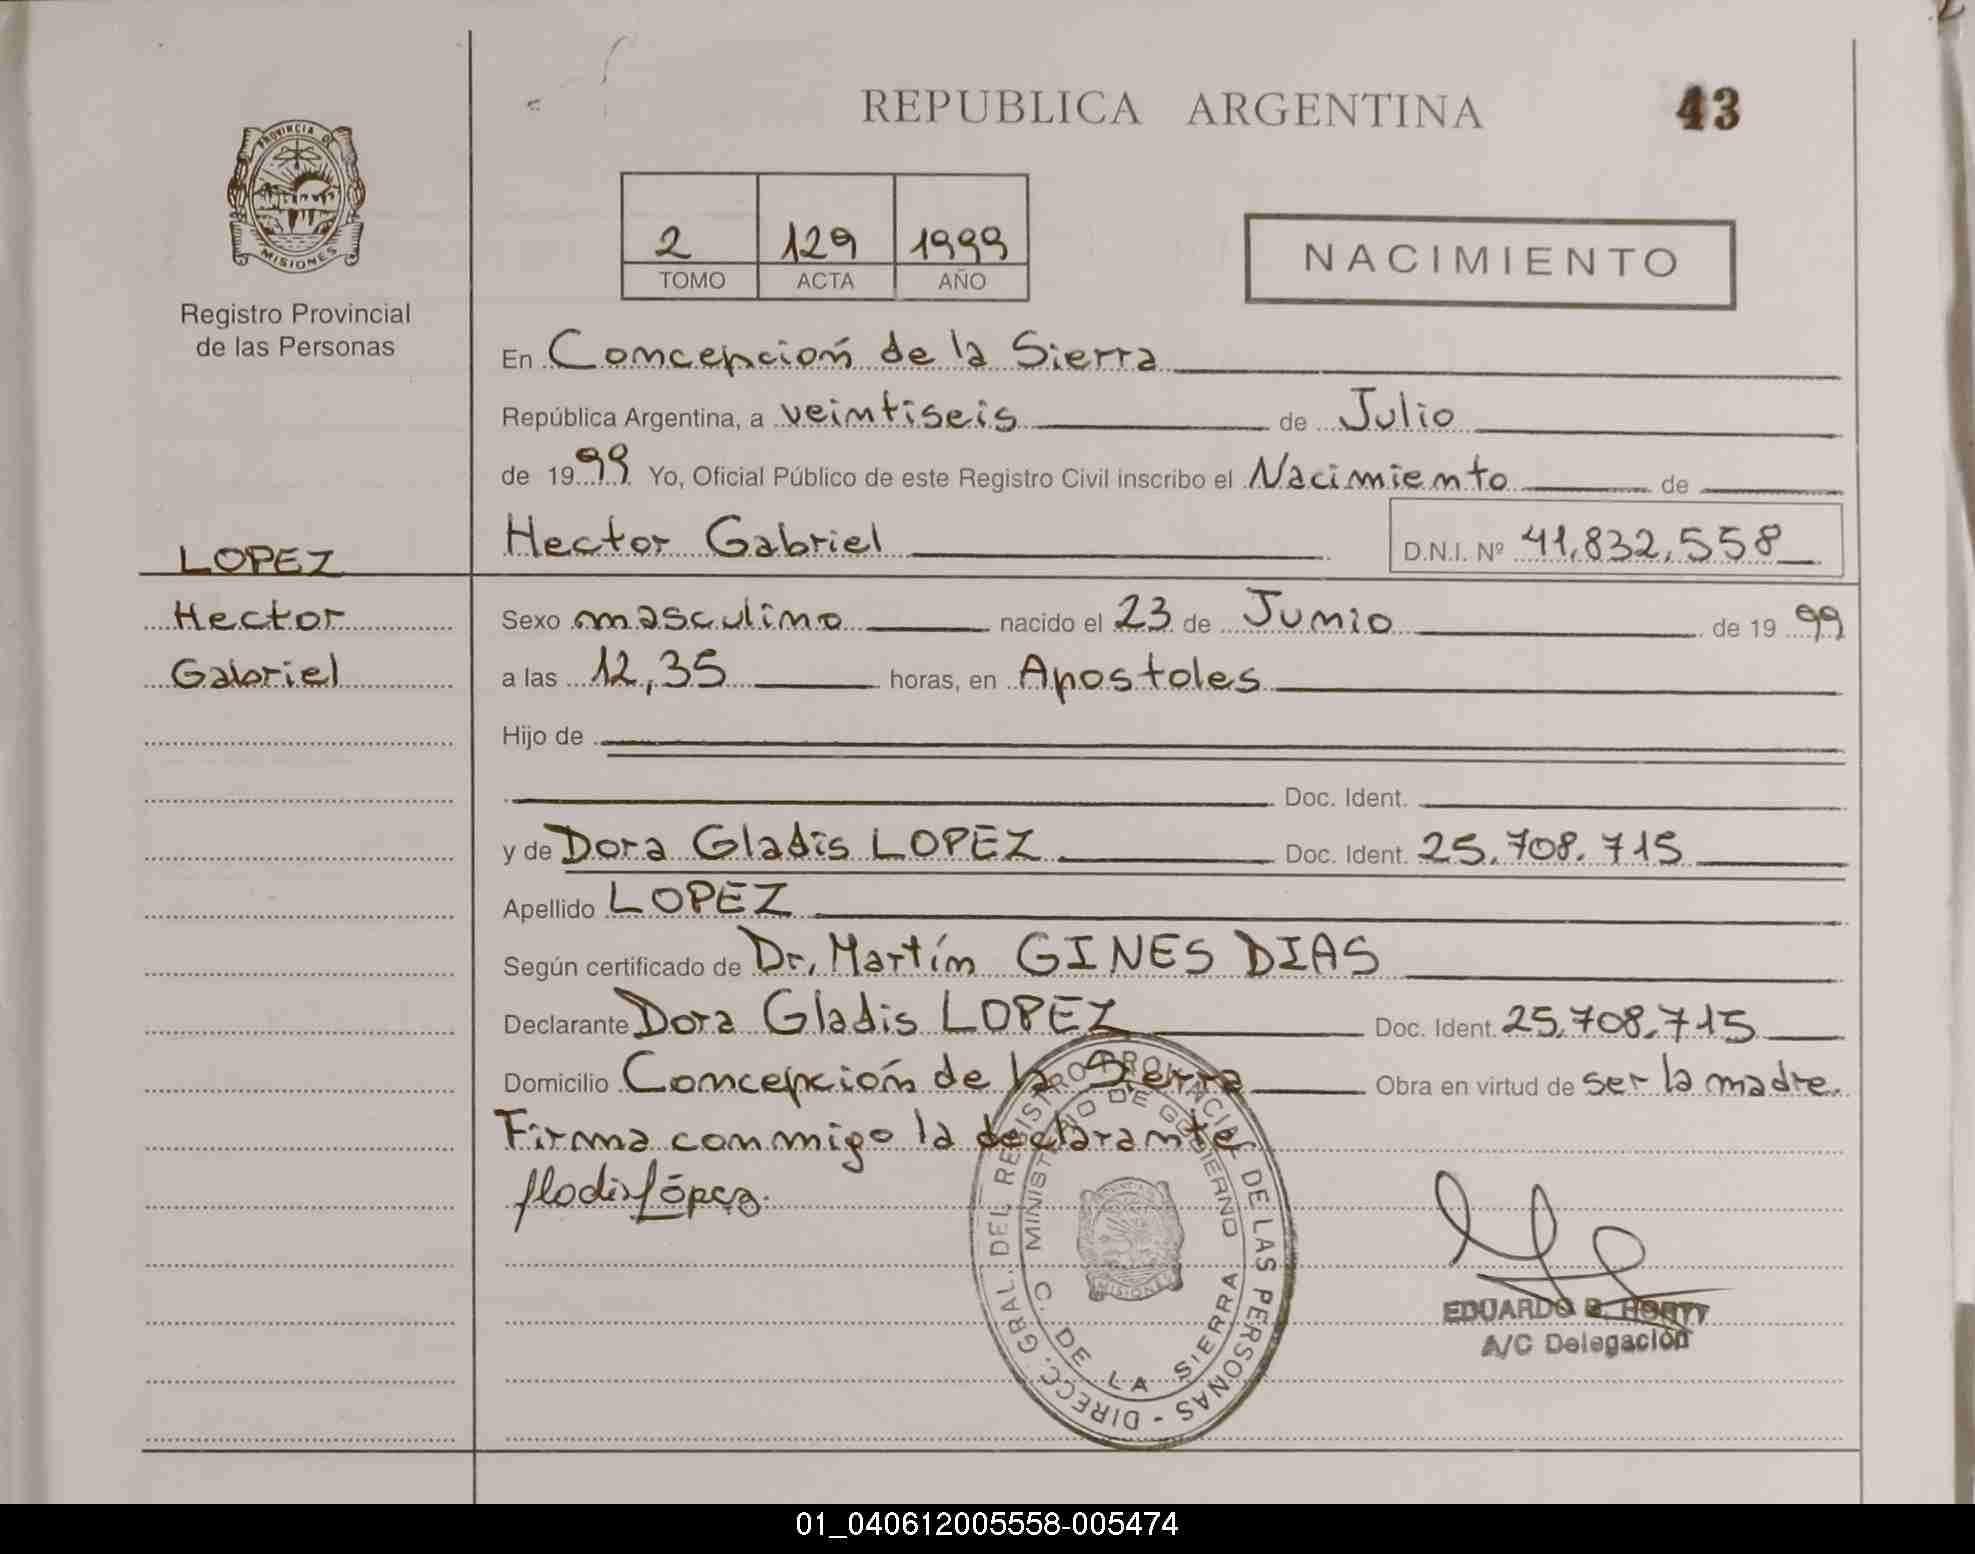 REPUBLICA ARGENTINA 43
PROVINCIA DE
MISIONES
Registro Provincial
de las Personas
2 129 1999
TOMO ACTA AÑO
NACIMIENTO
En Concepción de la Sierra
República Argentina, a veintiseis de Julio
de 1999 Yo, Oficial Público de este Registro Civil inscribo el Nacimiento de
LOPEZ Hector Gabriel D.N.I. Nº 41.832.558
Hector Sexo masculino nacido el 23 de Junio de 1999
Gabriel a las 12,35 horas, en Apostoles
Hijo de
Doc. Ident.
y de Dora Gladis LOPEZ Doc. Ident. 25.708.715
Apellido LOPEZ
Según certificado de Dr. Martín GINES DIAS
Declarante Dora Gladis LOPEZ Doc. Ident. 25.708.715
Domicilio Concepción de la Sierra Obra en virtud de ser la madre.
Firma conmigo la declarante
López
DIRECC. GRAL. DEL REGISTRO PROVINCIAL DE LAS PERSONAS -
MINISTERIO DE GOBIERNO
C. DE LA SIERRA
MISIONES
EDUARDO
A/C Delegación
01_040612005558-005474